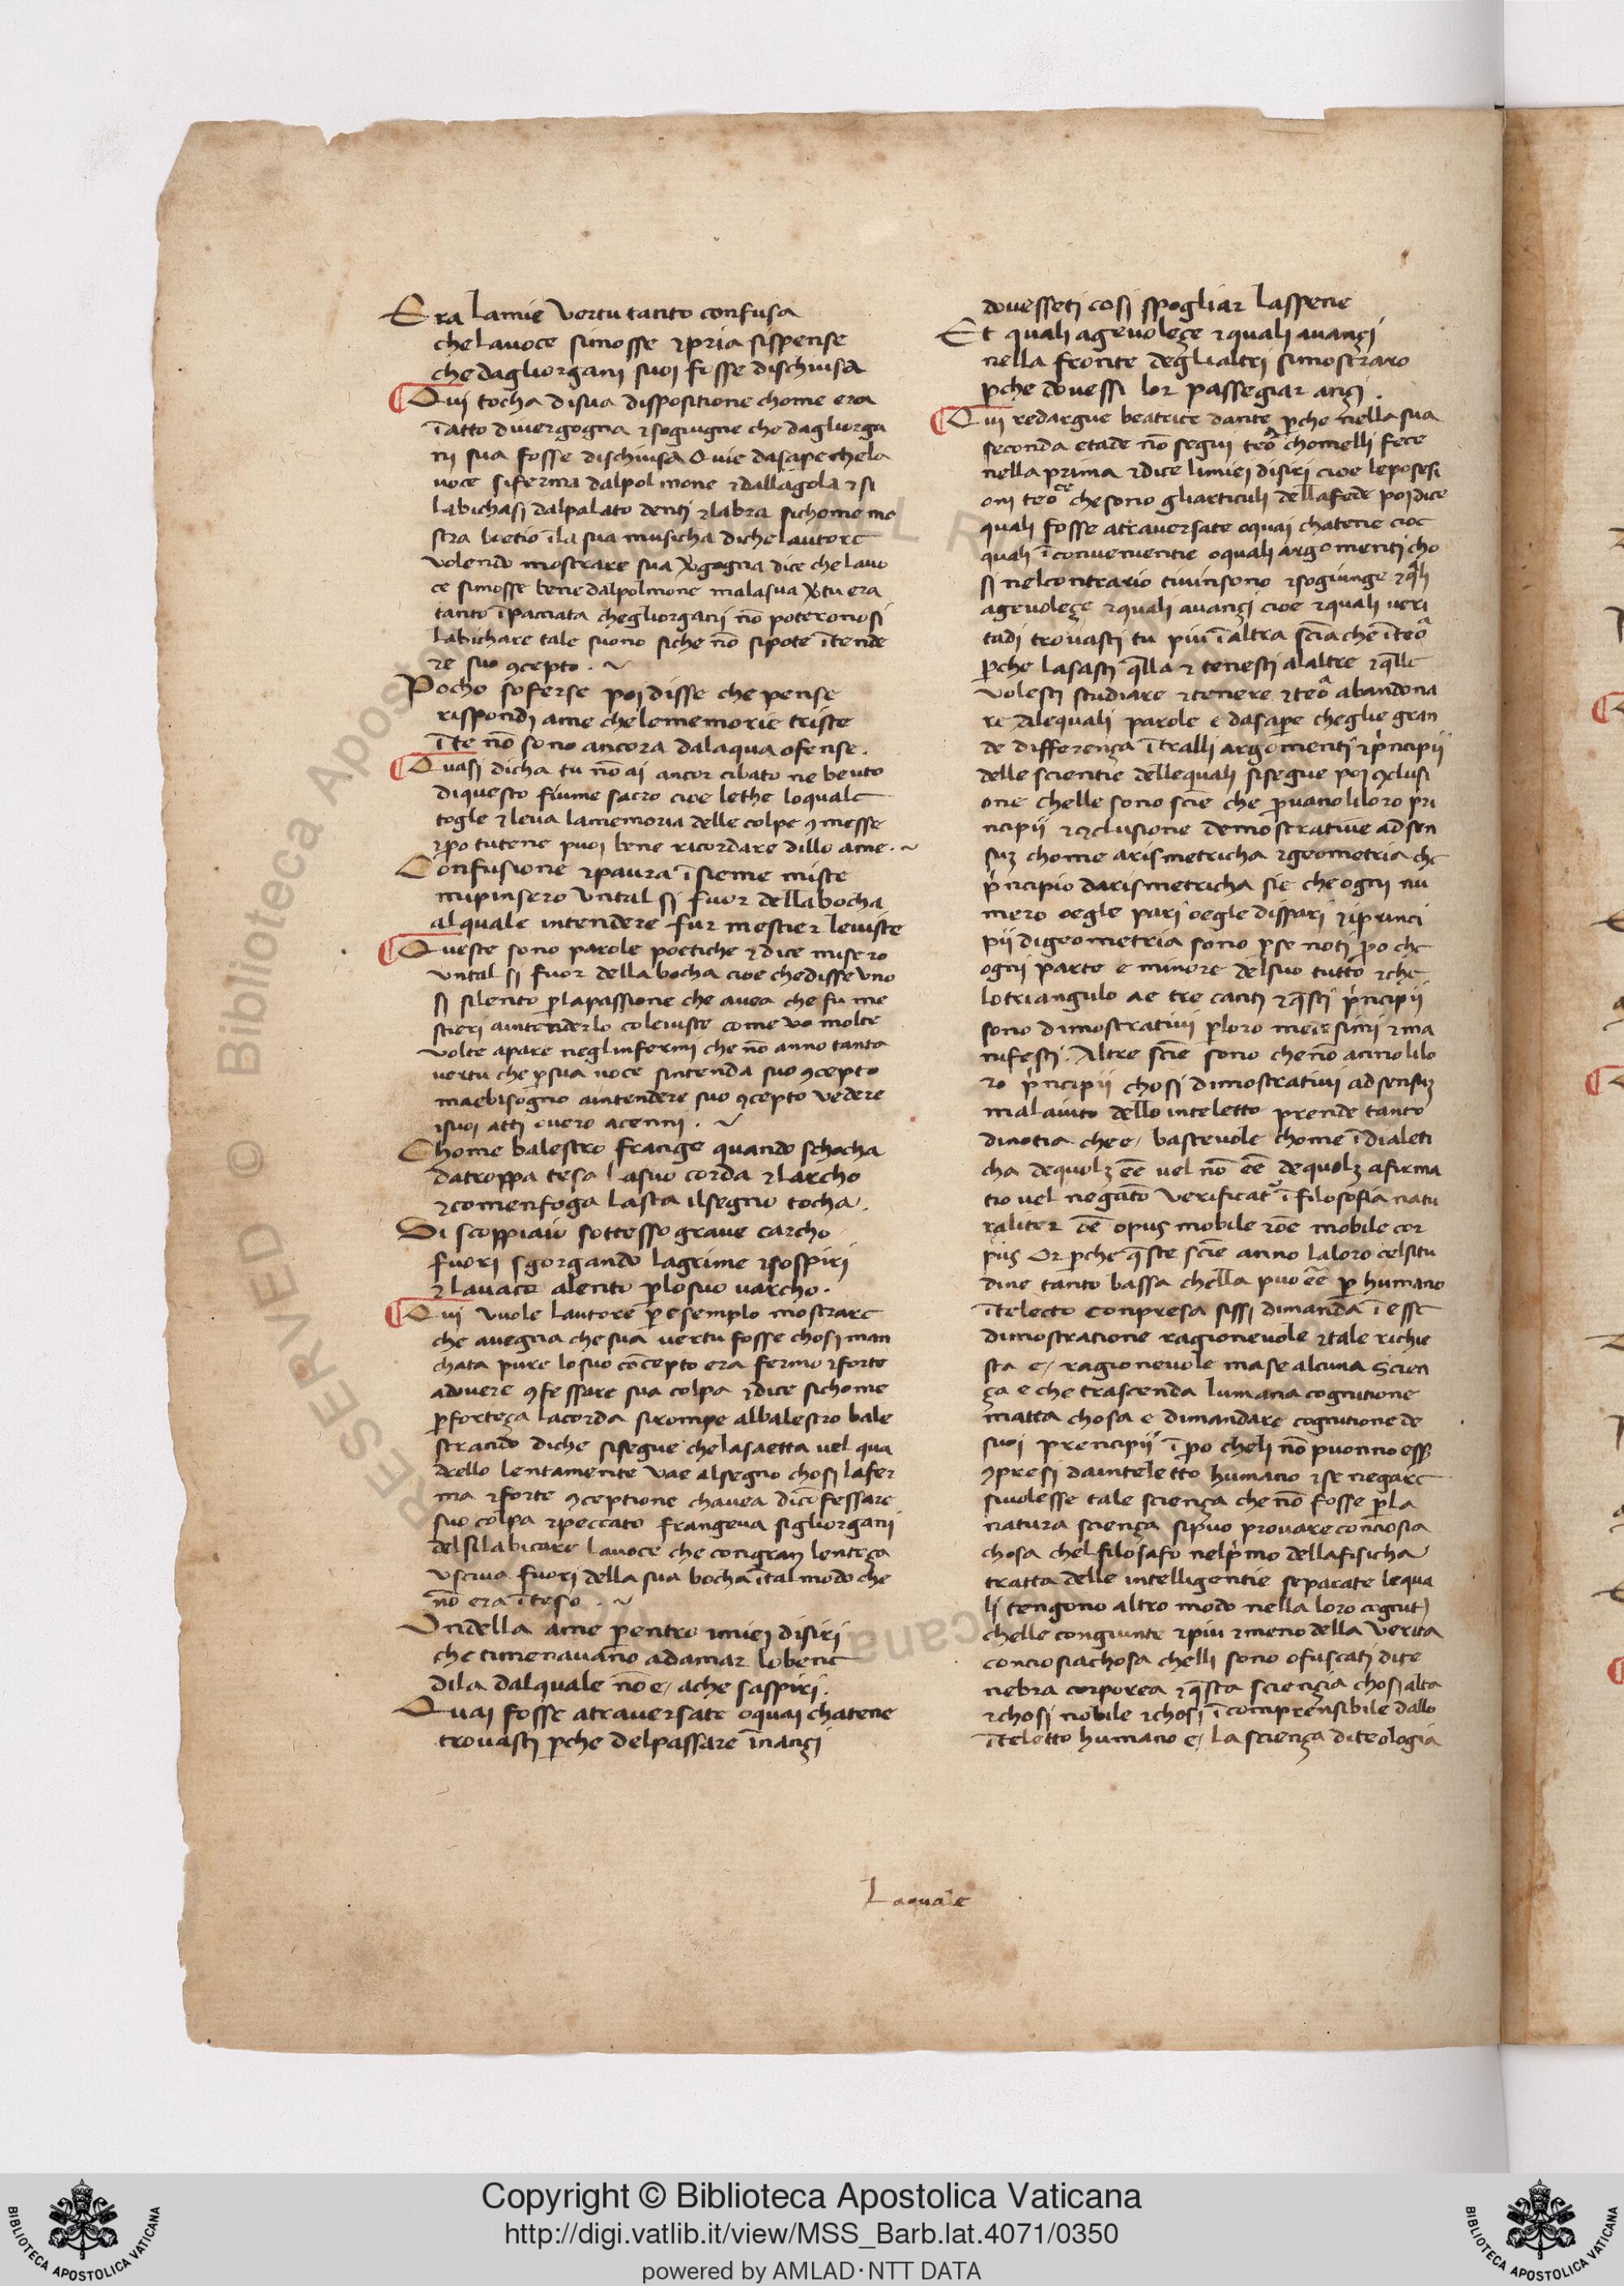 Era lamie vertu tanto confusa
che lauoce simosse ⁊pria sispense
che dagliorgani suoi fosse dischiusa
Qui tocha disua dispositione chome era
ĩatto diuergogna ⁊sogiugne che dagliorga
ni sua fosse dischiusa Ouie dasape chela
uoce siferma dalpolmone ⁊dallagola ⁊si
labichasi dalpalato denti ⁊labra sichome mo
stra boetio ĩla sua musicha diche lautore
volendo mostrare sua v̾gogna dice che lauo
ce simosse bene dalpolmone malasua v̾tu era
tanto ĩpacciata chegliorgani nō poteronosi
labichare tale suono siche nō sipote ĩtende
re suo ꝯcepto . ~
Pocho soferse poi disse che pense
rispondi ame chelememorie triste
ĩte nō sono ancora dalaqua ofense .
Quasi dicha tu nō ai ancor cibato ne beuto
diquesto fiume sacro cioe lethe loquale
togle ⁊leua lamemoria delle colpe ꝯmesse
⁊ꝑo tutene puoi bene ricordare dillo ame . ~
Confusione ⁊paura ĩsieme miste
mipinsero vntal si fuor della bocha
alquale intendere fur mestier leuiste
Queste sono parole poetiche ⁊dice misero
vntal si fuor della bocha cioe chedisse vno
si silento ꝑlapassione che auea che fu me
stieri aintenderlo coleuiste come vo molte
volte apare neglinfermi che nō anno tanta
vertu che ꝑsua uoce sintenda suo ꝯcepto
maebisogno aintendere suo ꝯcepto vedere
isuoi atti ouero acenni . ~
Chome balestro frange quando schocha
datroppa tesa lasuo corda ⁊larcho
⁊comenfoga lasta ilsegno tocha .
Si scoppiaio sottesso graue carcho
fuori sgorgando lagrime ⁊sospiri
⁊lauoce alento ꝑlosuo varcho .
Qui vuole lautore ꝑesemplo mostrare
che auegna che sua vertu fosse chosi man
chata pure losuo cōcepto era fermo ⁊forte
adouere ꝯfessare sua colpa ⁊dice sichome
ꝑforteça lacorda sirompe albalestro bale
strando diche sisegue che lasaetta uel qua
drello lentamente vae alsegno chosi lafer
ma ⁊forte ꝯceptione chauea dicōfessare
suo colpa ⁊peccato frangeua sigliorgani
delsilabicare lauoce che congran lenteça
vsciua fuori della sua bocha ĩtal modo che
nō era ĩteso . ~
Ondella ame ꝑentro imiei disiri
che timenauano adamar lobene
dila dalquale nō e ache saspiri .
Quai fosse atrauersate oquai chatene
trouasti ꝑche delpassare ĩnançi
douesseti cosi spogliar laspene
Et quali ageuoleçe ⁊quali auançi
nella fronte deglialtri simostraro
ꝑche douessi lor passegiar ançi .
Qui redargue beatrice dante ꝑche nella sua
seconda etade nō segui teoᵃ chomelli fece
nella prima ⁊dice limiei disiri cioe leposesi
oni teoᶜᵉ che sono gliarticuli della fede poi dice
quali fosse atrauersate oquai chatene cioe
quali ĩconuenientie oquali argomenti cho
si nelcontrario tiuinsono ⁊sogiunge ⁊qli
ageuoleçe ⁊quali auançi cioe ⁊quali ueri
tadi trouasti tu piu ĩaltra scīa che ĩteoᵃ
ꝑche lasasti qlla ⁊ tenesti alaltre ⁊qlle
volesti studiare ⁊tenere ⁊teoᵃ abandona
re Alequali parole e dasaꝑe cheglie gran
de differença ĩtralli argomenti ⁊pncipii
delle scientie dellequali sisegue poi ꝯclusi
one chelle sono scīe che ꝓuano liloro pri
ncipii ⁊ꝯclusione demostratiue adsen
suꝫ chome arismetricha ⁊geometria che
pncipio darismetricha sie che ogni nu
mero oegle pari oegle dispari ⁊iprinci
pii digeometria sono ꝑse noti ꝑo che
ogni parte e minore delsuo tutto ⁊che
lotriangulo ae tre canti ⁊qsti pncipii
sono dimostratiui ꝑloro meesimi ⁊ma
nifesti . Altre scīe sono chenō anno lilo
ro pncipii chosi dimostratiui adsensuꝫ
malaiuto dello inteletto prende tanto
dinotia che e bastevole chome ĩdialeti
cha dequolꝫ eē uel nō eē dequolꝫ afirma
tio uel negatō verificat᷑ ĩfilosofia natu
raliter oē opus mobile ⁊oē mobile cor
pus Or ꝑche qste scīe anno laloro celsitu
dine tanto bassa chella puo eē ꝑ humano
ĩtelecto conpresa sissi dimanda ĩ esse
dimostratione ragioneuole ⁊tale richie
sta e ragioneuole mase alcuna scien
ça e che trascenda lumana cognitione
matta chosa e dimandare cognitione de
suoi prencipii ĩꝑo cheli nō puonno esse
ꝯpresi dainteletto humano ⁊se negare
siuolesse tale sciença che nō fosse ꝑla
natura sciença sipuo prouare conciosia
chosa chel filosafo nelpmo dellafisicha
tratta delle intelligentie separate lequa
li tengono altro modo nella loro cognit)
chelle congiunte ⁊piu ⁊meno della verita
conciosiachosa chelli sono ofuscati dite
nebra corporea ⁊qsta sciençia chosi alta
⁊chosi nobile ⁊chosi ĩcomprensibile dallo
ĩteletto humano e la sciença diteologia
Laquale
Copyright © Biblioteca Apostolica Vaticana
http://digi.vatlib.it/view/MSS_Barb.lat.4071/0350
powered by AMLAD·NTT DATA
BIBLIOTECA APOSTOLICA VATICANA
BIBLIOTECA APOSTOLICA VATICANA